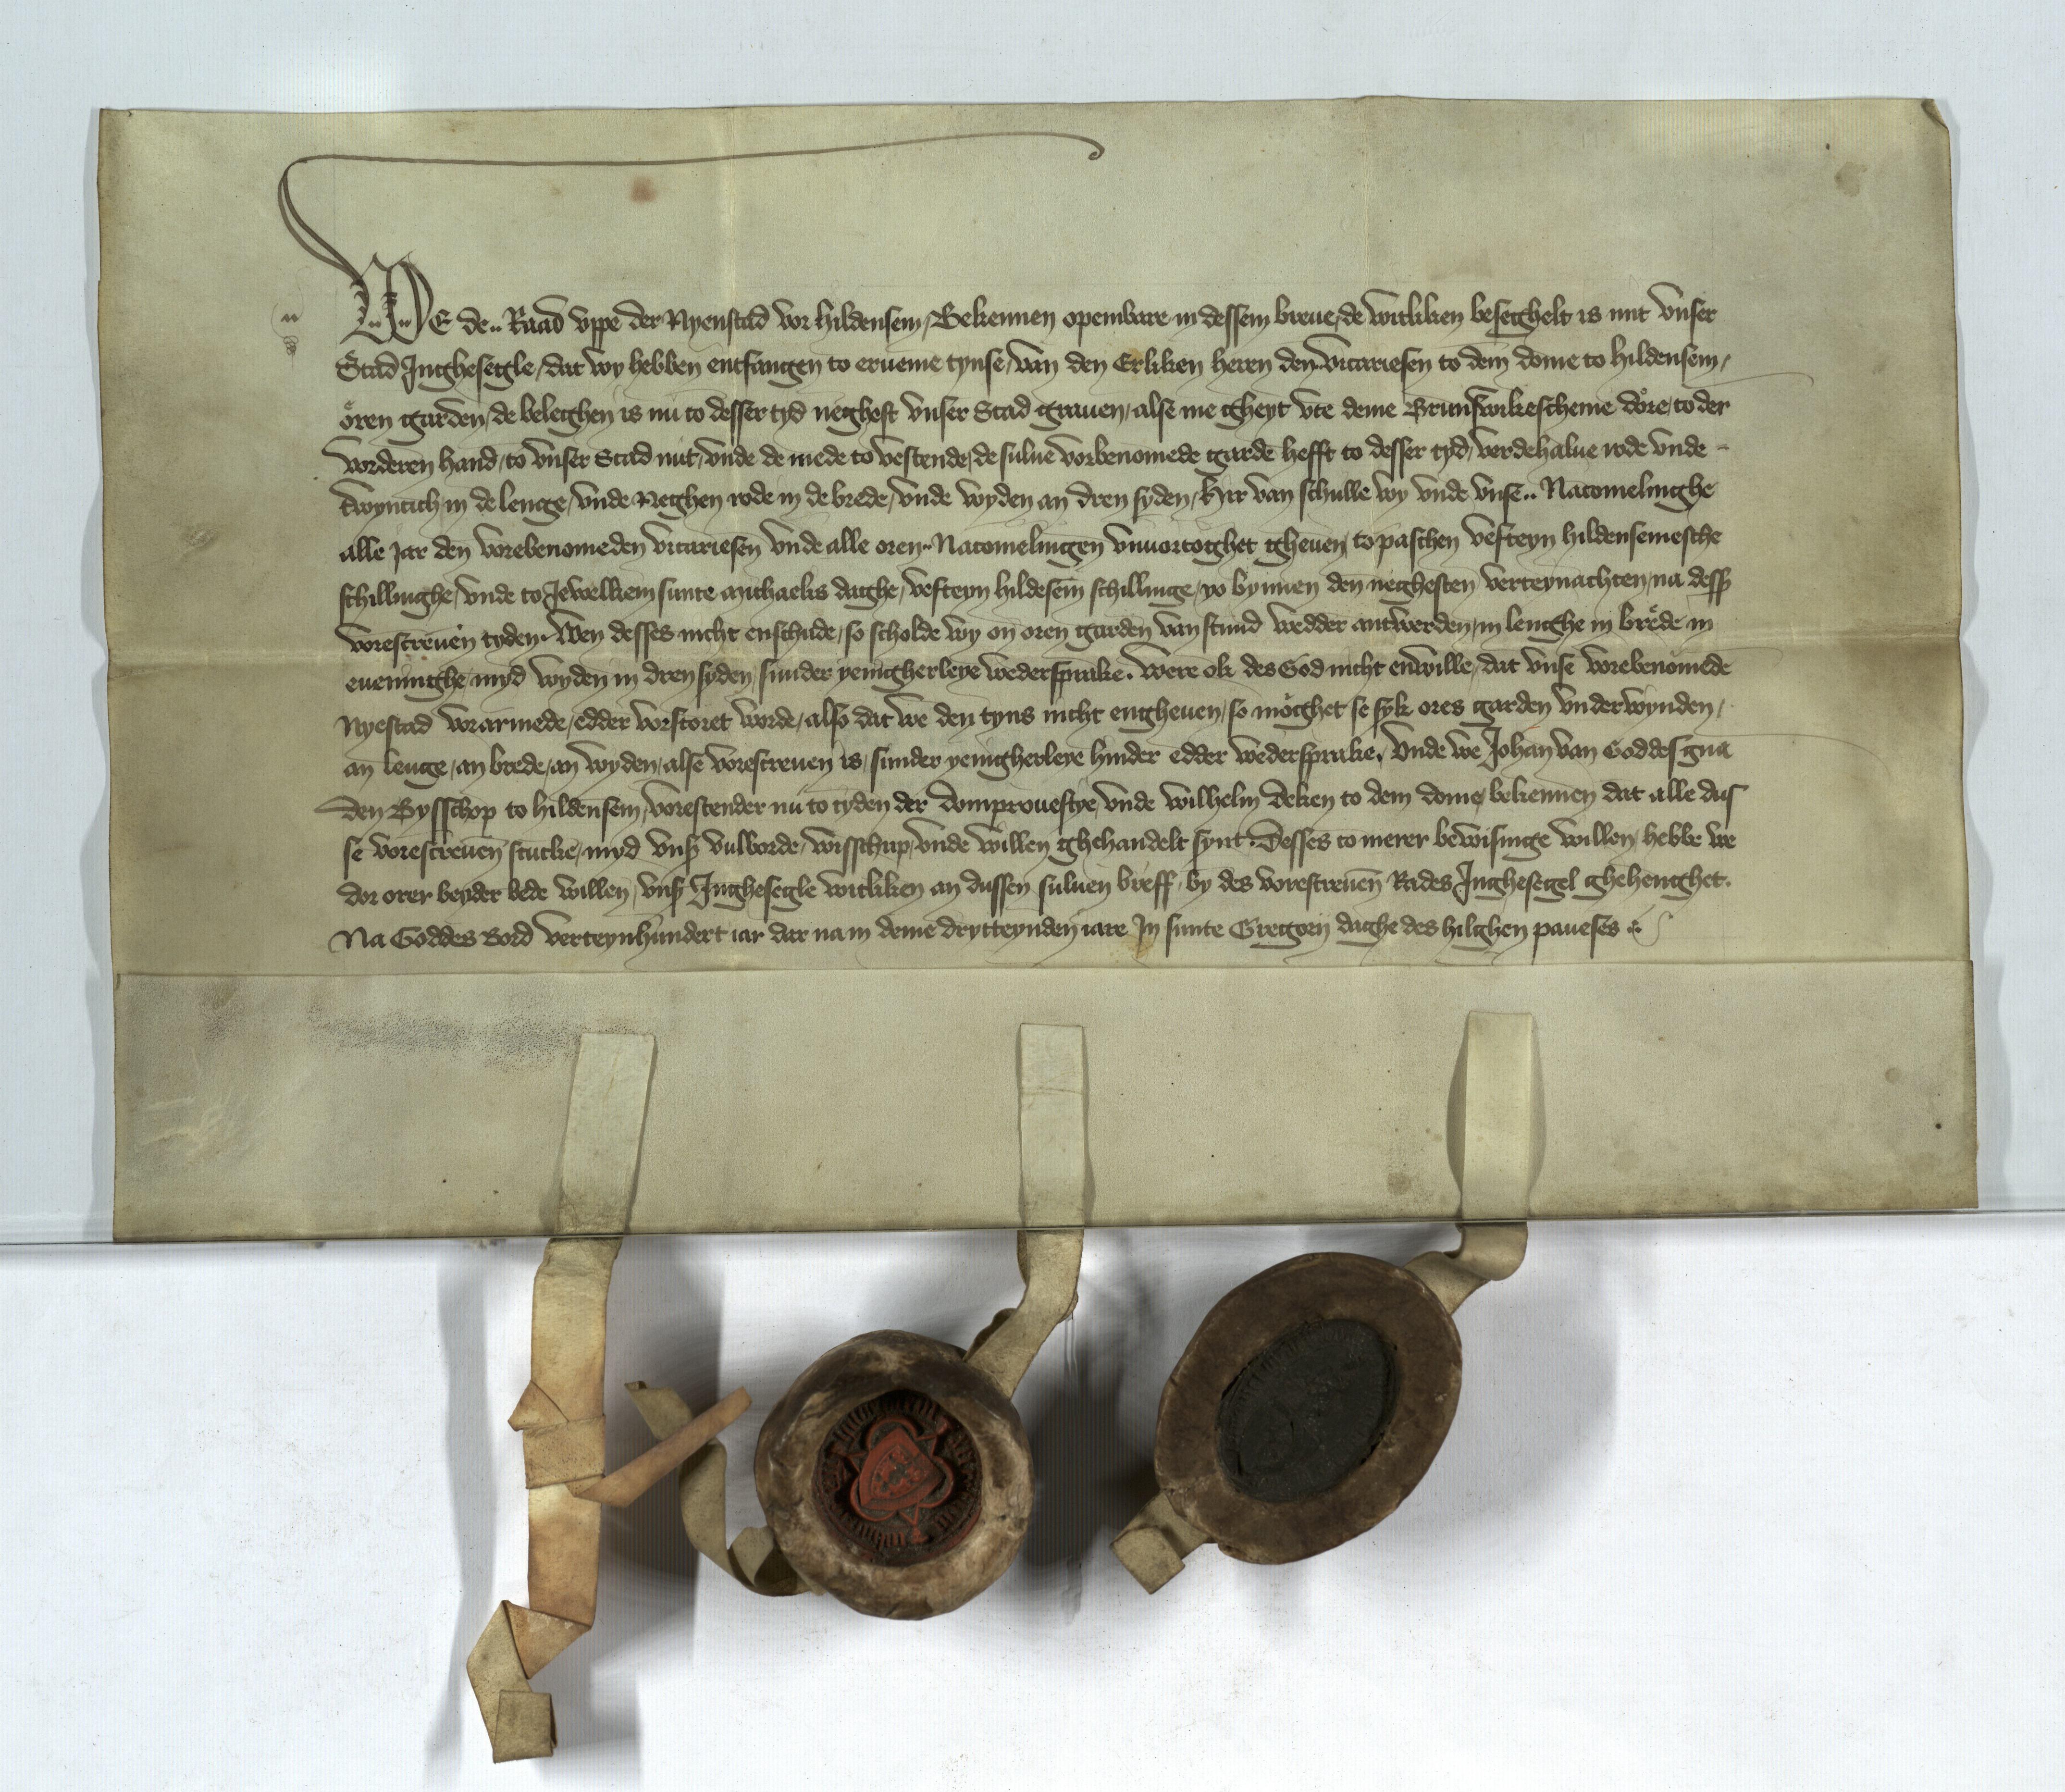 WE de .. Raad vppe der Nyenstad vor hildensem / Bekennen openbare in dessem breue / de witliken beseghelt is mit vnser
Stad Jnghesegle / dat wy hebben entfangen to erueme tynse / van den Erliken heren den .. vicariesen to dem dome to hildensem /
oͤren garden / de beleghen is nu to desser tyd neghest vnser Stad grauen / alse me gheyt vte deme Brunswikescheme doͤre / to der
vorderen hand / to vnser Stad nut / vnde de mede to vestende / de sulue vorbenomede garde hefft to desser tyd / verdehalue rode vnde -
twyntich in de lenge / vnde Neghen rode in de brede / vnde wyden an dren syden / Hir van schulle wy vnde vnse .. Nacomelinghe
alle Jar den vorebenomeden vicariesen vnde alle oren .. Nacomelingen vnuortoghet gheuen / to paschen vefteyn hildensemesche
schillinghe / vnde to Jewelkem sunte Michaelis daghe / vefteyn hildesem̄ schillinge / yo bynnen den neghesten verteynachten / na dess
vorescreuen tyden . Wen desses nicht enschude / so scholde wy on oren garden van stund wedder antwerden / in lenghe in brede in
eueninghe / myd wyden in dren syden / sunder yenigherleye wedersprake . Were ok des God nicht enwille / dat vnse vorebenomede
Nyestad vorarmede / edder vorstoret worde / also dat we den tyns nicht engheuen / so moͤghet se syk ores garden vnderwynden /
an lenge / an brede / an wyden / alse vorescreuen is / sunder yenigherleye hinder edder wedersprake . Vnde we Johan van Goddes gna
den Bysschop to hildensem / vorestender nu to tyden der domprouestye / vnde wilhelm deken to dem dome / bekennen dat alle dus
se vorescreuen stucke / myd vns vulborde / wisschup / vnde willen ghehandelt synt . Desses to merer bewisinge willen / hebbe we
dor orer beyder bede willen / vns Jnghesegle witliken an dussen suluen breff / by des vorescreuen Rades Jnghesegel ghehenghet .
Na Goddes Bord verteynhundert iar dar na in deme drytteynden iare Jn sunte Gregorij daghe des hilghen paueses